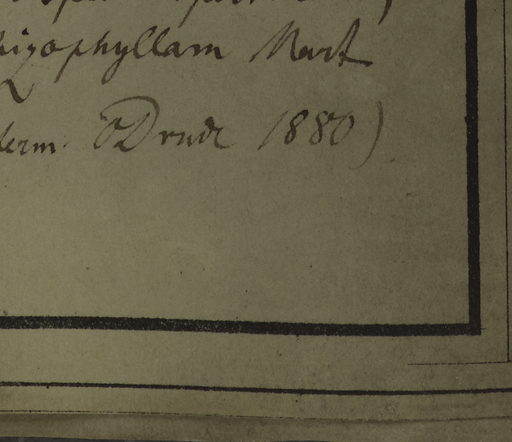 hizophyllam Mart
term. ODrude 1880)